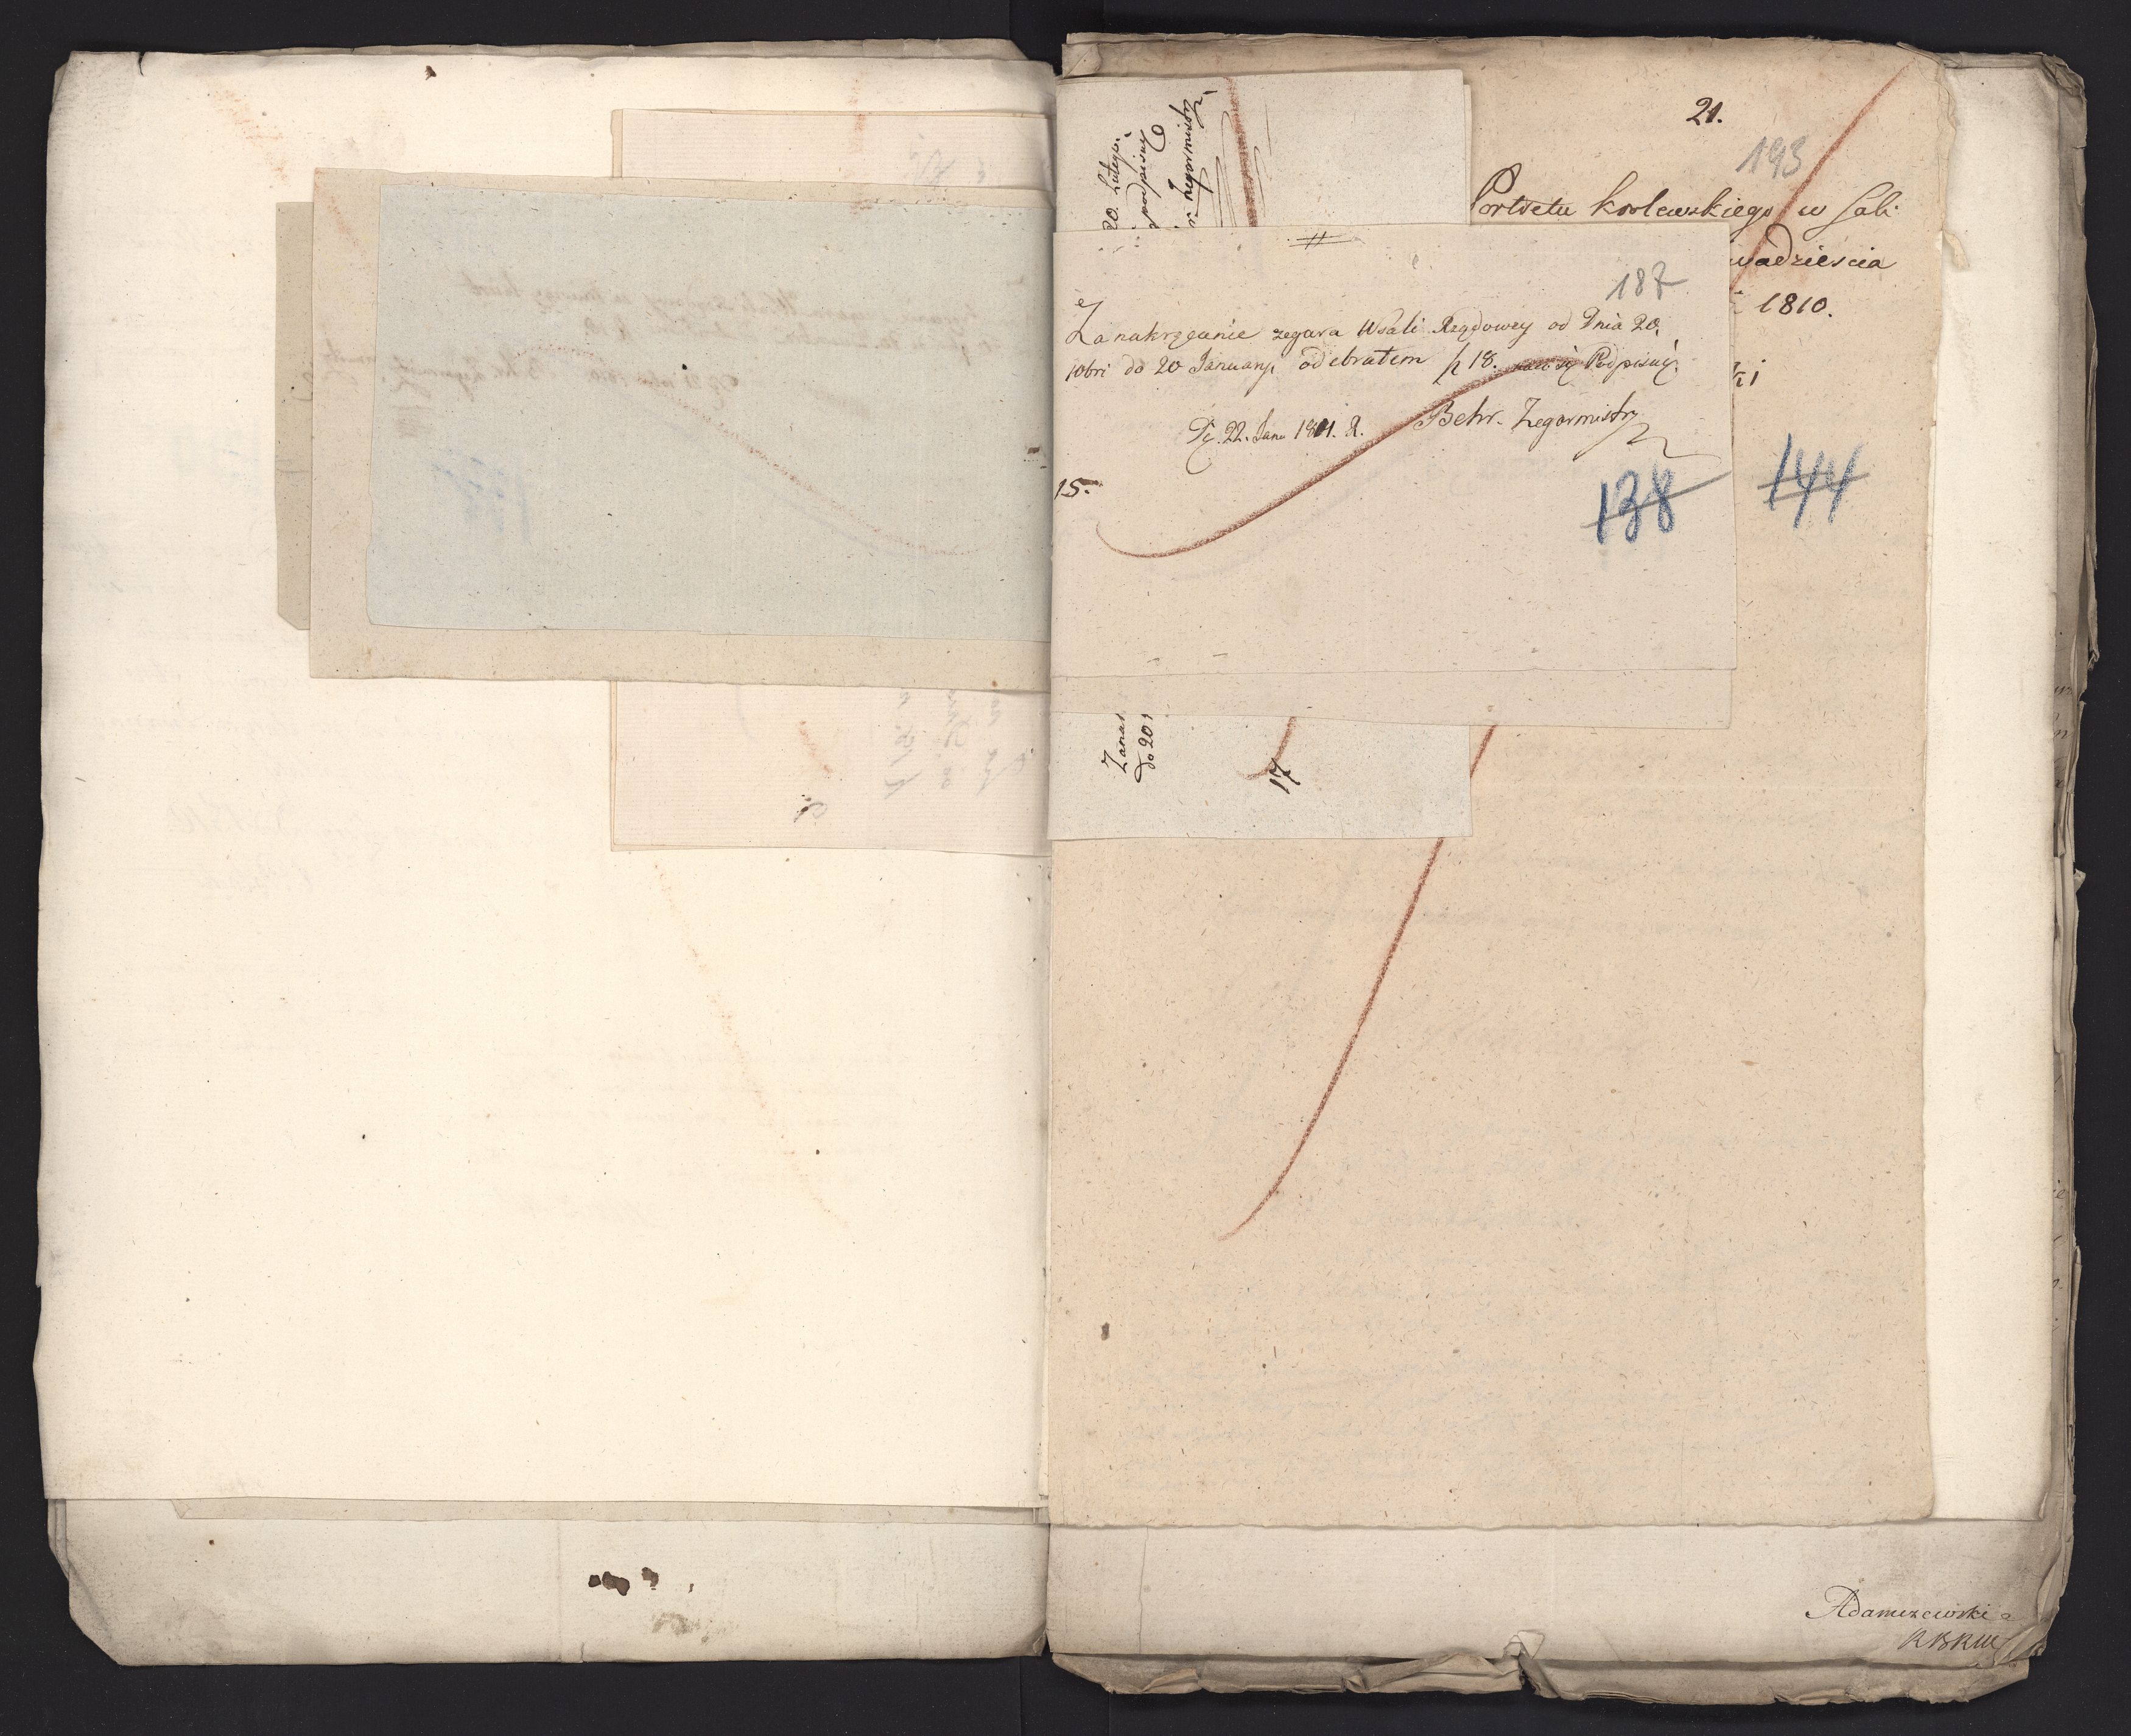 21.
193
Portretu krolewskiego w Sali
wadziescia
1810.
ki
144
20. Lutego
podpisuię
Zegarmistrz
187
Za nakręcanie zegara W Sali Rządowey od Dnia 20.
10bri do 20 January odebrałem fl 18. Podpisuię.
D. 22. Janu 1811. R. Behr. Zegarmistrz
15.
138
Zanak
do 20
17
Adamczewski